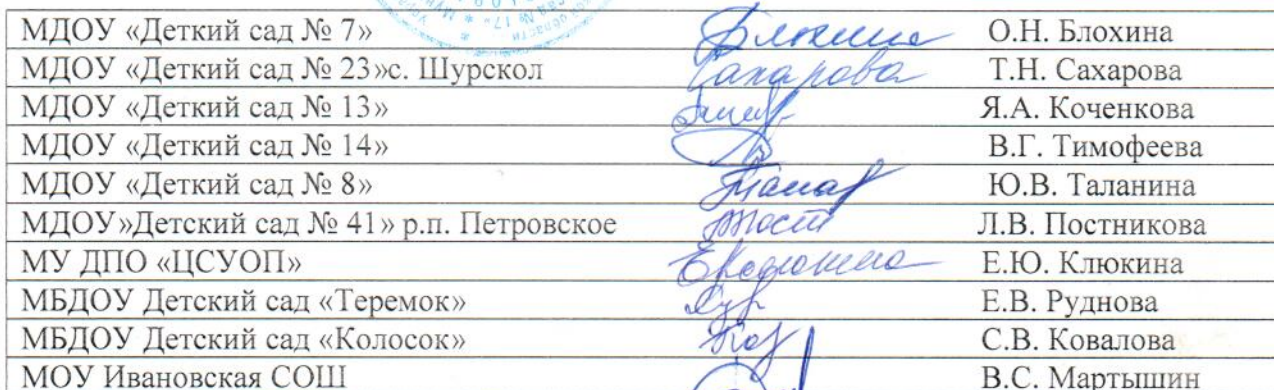 МДОУ «Деткий сад № 7» Блохина О.Н. Блохина
МДОУ «Деткий сад № 23»с. Шурскол Сахарова Т.Н. Сахарова
МДОУ «Деткий сад № 13» Я.А. Коченкова
МДОУ «Деткий сад № 14» В.Г. Тимофеева
МДОУ «Деткий сад № 8» Ю.В. Таланина
МДОУ»Детский сад № 41» р.п. Петровское Л.В. Постникова
МУ ДПО «ЦСУОП» Е.Ю. Клюкина
МБДОУ Детский сад «Теремок» Е.В. Руднова
МБДОУ Детский сад «Колосок» С.В. Ковалова
МОУ Ивановская СОШ В.С. Мартышин